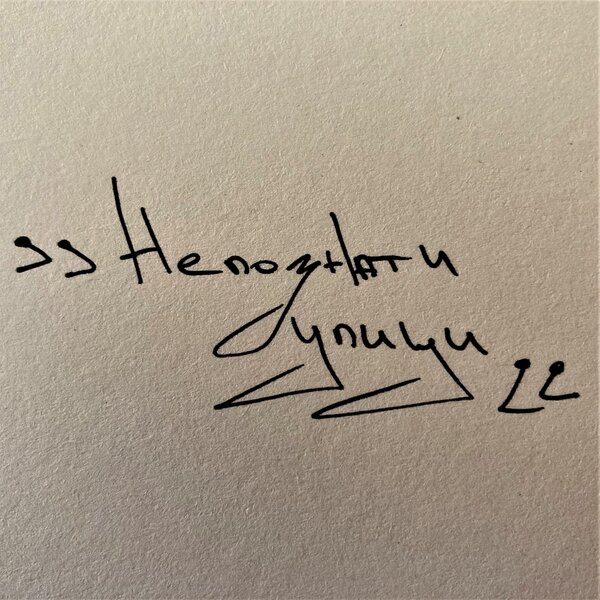 „Непознати
улици“